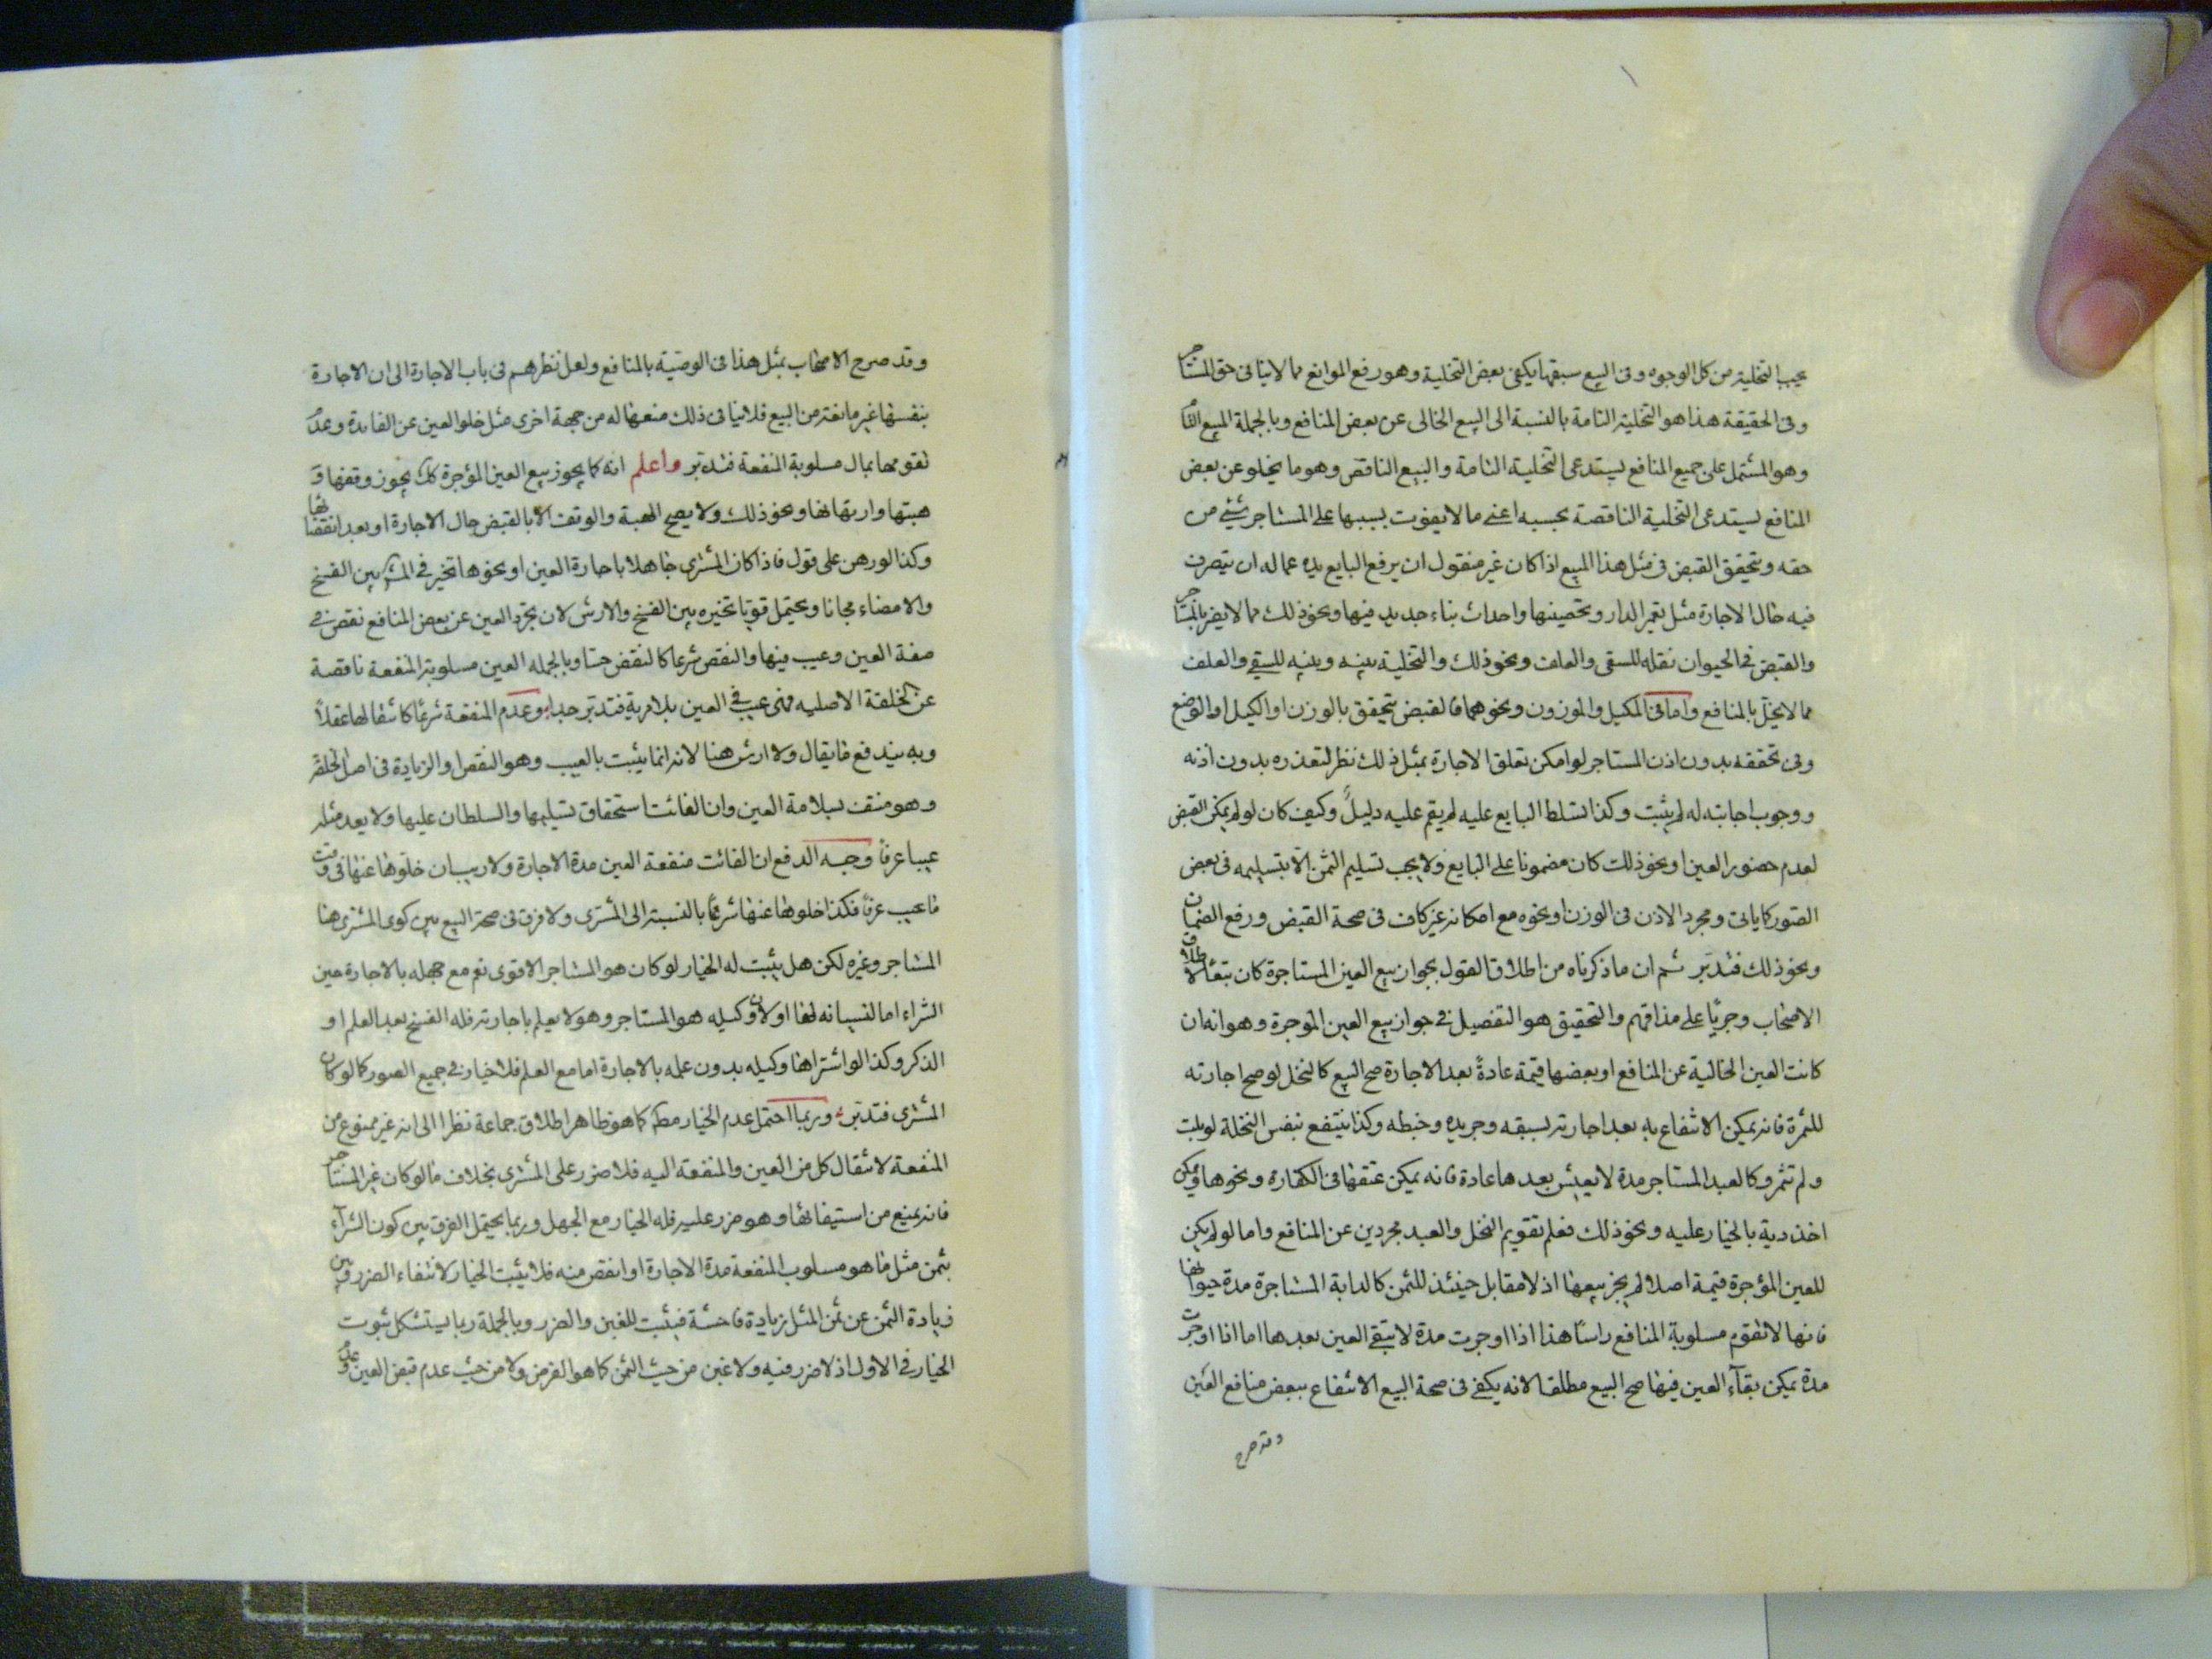 يجب التخلية من كل الوجوه وفى البيع سبقها يكفى بعض التخلية وهو رفع الموانع مما لاينافى حق المستاجر
وفى الحقيقة هذا هو التخلية التامة بالنسبة الى البيع الخالى عن بعض المنافع وبالجملة المبيع التام
وهو المشتمل على جميع المنافع يستدعى التخلية التامة والبيع الناقص وهو ما يخلو عن بعض
المنافع يستدعى التخلية الناقصة بحسبه اعنى مالايفوت بسببها على المستاجر شئ من
حقه ويتحقق القبض فى مثل هذا المبيع اذا كان غير منقول ان يرفع البايع يده عما له ان يتصرف
فيه حال الاجارة مثل تعمير الدار وتحصينها واحداث بناء جديد فيها ونحو ذلك مما لايضر بالمستاجر
والقبض فى الحيوان نقله للسقى والعلف ونحو ذلك والتخلية بينه وبينه للسقى والعلف
مما لايخل بالمنافع واما فى المكيل والموزون ونحوهما فالقبض يتحقق بالوزن او الكيل او الوضع
وفى تحققه بدون اذن المستاجر لو امكن تعلق الاجارة بمثل ذلك نظر لتعذره بدون اذنه
ووجوب اجابته له لم يثبت وكذا تسلط البايع عليه لم يقم عليه دليل وكيف كان لو لم يمكن القبض
لعدم حضور العين او نحو ذلك كان مضمونا على البايع ولا يجب تسليم الثمن الا بتسليمه فى بعض
الصور كما ياتى ومجرد الاذن فى الوزن او نحوه مع امكانه غير كاف فى صحة القبض ورفع الضمان
ونحو ذلك فتدبر ثم ان ما ذكرناه من اطلاق القول بجواز بيع العين المستاجرة كان تبعا لاطلاق
الاصحاب وجريا على مذاقهم والتحقيق هو التفصيل فى جواز بيع العين الموجرة وهو انه ان
كانت العين الخالية عن المنافع او بعضها قيمة عادة بعد الاجارة صح البيع كالنخل لو صح اجارته
للثمرة فانه يمكن الانتفاع به بعد اجارته بسبقه وجريده وخبطه وكذا ينتفع بنفس النخلة لو يبت
ولم تثمر وكالعبد المستاجر مدة لايعيش بعدها عادة فانه يمكن عتقها فى الكفارة ونحوها ويمكن
اخذ دية بالخيار عليه ونحو ذلك فعلم تقويم النخل والعبد مجردين عن المنافع واما لو لم يكن
للعين المؤجرة قيمة اصلا لم يجز بيعها اذ لامقابل حينئذ للثمن كالدابة المستاجرة مدة حيوانها
فانها لاتقوم مسلوبة المنافع راسا هذا اذا اوجرت مدة لاتبقى العين بعدها اما اذا اوجرت
مدة يمكن بقآء العين فيها صح البيع مطلقا لانه يكفى فى صحة البيع الانتفاع ببعض منافع العين
وقد صرح
وقد صرح الاصحاب بمثل هذا فى الوصية بالمنافع ولعل نظرهم فى باب الاجارة الى ان الاجارة
بنفسها غير مانعة من البيع فلاينافى ذلك منعها له من جهة اخرى مثل خلو العين عن الفايدة وعدم
تقومها بمال مسلوبة المنفعة فتدبر واعلم انه كما يجوز بيع العين المؤجرة كك يجوز وقفها و
هبتها وارتهانها ونحو ذلك ولا يصح الهبة والوقف الا بالقبض حال الاجارة او بعد انقضائها
وكذا لو رهن على قول فاذا كان المشترى جاهلا باجارة العين او نحوها تخير فى المشهور بين الفسخ
والامضاء مجانا ويحتمل قويا تخيره بين الفسخ والارش لان تجرد العين عن بعض المنافع نقص فى
صفة العين وعيب فيها والنقص شرعا كالنقص حسا وبالجمله العين مسلوبة المنفعة ناقصة
عن الخلقة الاصليه فهى عيب فى العين بلامرية فتدبر جدا وعدم المنفعة شرعا كانتفائها عقلا
وبه يندفع ما يقال ولا ارش هنا لانه انما يثبت بالعيب وهو النقص او الزيادة فى اصل الخلقة
وهو منتف لسلامة العين وان الفائت استحقاق تسليمها والسلطان عليها ولا يعد مثله
عيبا عرفا وجه الدفع ان الفائت منفعة العين مدة الاجارة ولا ريب ان خلوها عنها فى وقت
ما عيب عرفا فكذا خلوها عنها شرعا بالنسبة الى المشترى ولا فرق فى صحة البيع بين كون المشترى هنا
المستاجر وغيره لكن هل يثبت له الخيار لو كان هو المستاجر الاقوى نعم مع جهله بالاجارة حين
الشراء اما لنسيانه لها او لان وكيله هو المستاجر وهو لا يعلم باجارته فله الفسخ بعد العلم او
الذكر وكذا لو اشتراها وكيله بدون علمه بالاجارة اما مع العلم فلا خيار فى جميع الصور كما لو كان
المشترى فتدبر وربما احتمل عدم الخيار مطم كما هو ظاهر اطلاق جماعة نظرا الى انه غير ممنوع من
المنفعة لانتقال كل من العين والمنفعة اليه فلا ضرر على المشترى بخلاف ما لو كان غير المستاجر
فانه يمنع من استيفائها وهو ضرر عليه فله الخيار مع الجهل وربما يحتمل الفرق بين كون الشرآء
بثمن مثل ما هو مسلوب المنفعة مدة الاجارة او انقص منه فلا يثبت الخيار لانتفاء الضرر وبين
زيادة الثمن عن ثمن المثل زيادة فاحشة فيثبت للغبن والضرر وبالجملة ربما يستشكل ثبوت
الخيار فى الاول اذ لاضرر فيه ولا غبن من حيث الثمن كما هو الفرض ولا من حيث عدم قبض العين وعدم